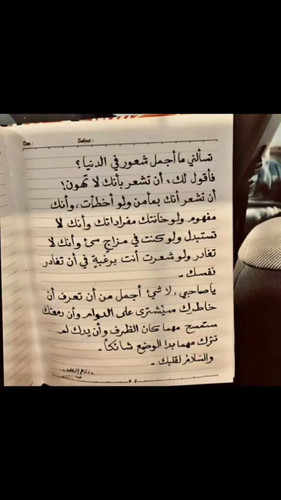 Date: Subject:
تسألني ما أجمل شعور في الدنيا؟
فأقول لك، أن تشعر بأنك لا تهون!
أن تشعر أنك بمأمن ولو أخطأت، وأنك
مفهوم ولو خانتك مفرداتك وأنك لا
تستبدل ولو كنت في مزاج سئ وأنك لا
تغادر ولو شعرت أنت برغبةٍ في أن تغادر
نفسك -
يا صاحبي، لا شئ أجمل من أن تعرف أن
خاطرك سيُشترى على الدوام وأن دمعتك
ستمسح مهما كان الظرف وأن يدك لن
تترك مهما بدا الوضع شائكاً -
والسلام لقلبك -